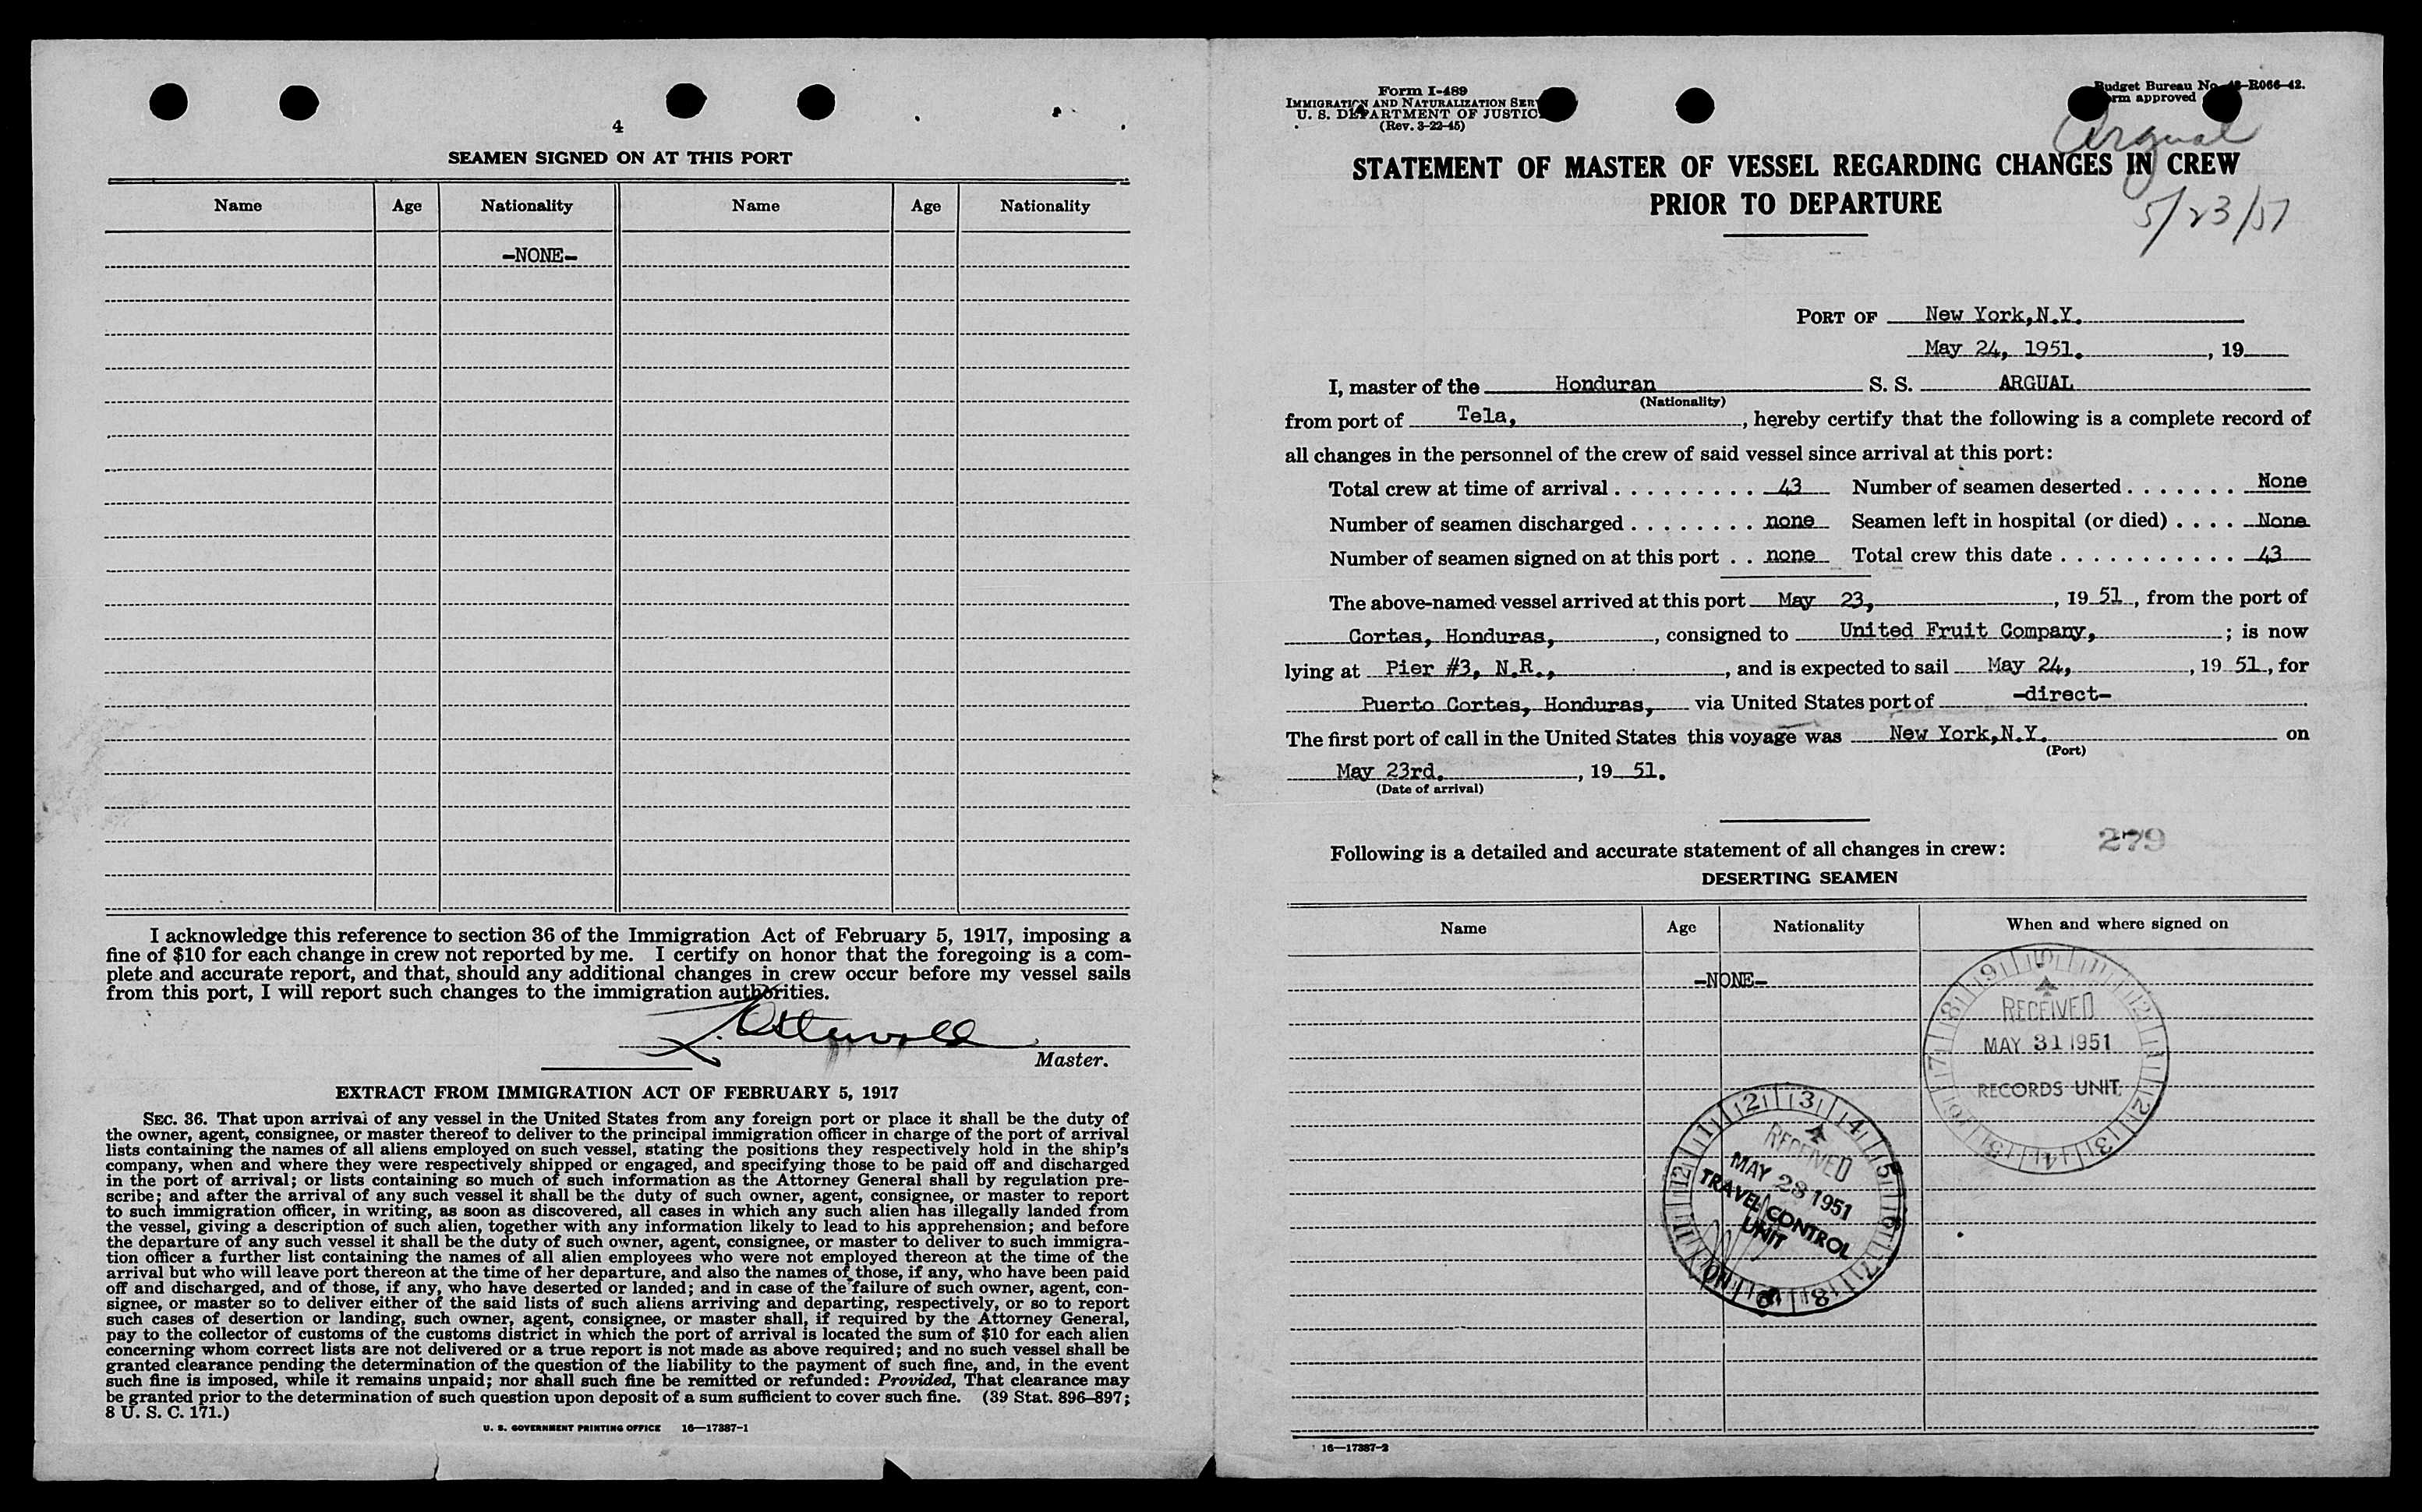 4
SEAMEN SIGNED ON AT THIS PORT
Name Age Nationality Name Age Nationality
-NONE-
I acknowledge this reference to section 36 of the Immigration Act of February 5, 1917, imposing a
fine of $10 for each change in crew not reported by me. I certify on honor that the foregoing is a com-
plete and accurate report, and that, should any additional changes in crew occur before my vessel sails
from this port, I will report such changes to the immigration authorities.
Master.
EXTRACT FROM IMMIGRATION ACT OF FEBRUARY 5, 1917
SEC. 36. That upon arrival of any vessel in the United States from any foreign port or place it shall be the duty of
the owner, agent, consignee, or master thereof to deliver to the principal immigration officer in charge of the port of arrival
lists containing the names of all aliens employed on such vessel, stating the positions they respectively hold in the ship's
company, when and where they were respectively shipped or engaged, and specifying those to be paid off and discharged
in the port of arrival; or lists containing so much of such information as the Attorney General shall by regulation pre-
scribe; and after the arrival of any such vessel it shall be the duty of such owner, agent, consignee, or master to report
to such immigration officer, in writing, as soon as discovered, all cases in which any such alien has illegally landed from
the vessel, giving a description of such alien, together with any information likely to lead to his apprehension; and before
the departure of any such vessel it shall be the duty of such owner, agent, consignee, or master to deliver to such immigra-
tion officer a further list containing the names of all alien employees who were not employed thereon at the time of the
arrival but who will leave port thereon at the time of her departure, and also the names of those, if any, who have been paid
off and discharged, and of those, if any, who have deserted or landed; and in case of the failure of such owner, agent, con-
signee, or master so to deliver either of the said lists of such aliens arriving and departing, respectively, or so to report
such cases of desertion or landing, such owner, agent, consignee, or master shall, if required by the Attorney General,
pay to the collector of customs of the customs district in which the port of arrival is located the sum of $10 for each alien
concerning whom correct lists are not delivered or a true report is not made as above required; and no such vessel shall be
granted clearance pending the determination of the question of the liability to the payment of such fine, and, in the event
such fine is imposed, while it remains unpaid; nor shall such fine be remitted or refunded: Provided, That clearance may
be granted prior to the determination of such question upon deposit of a sum sufficient to cover such fine. (39 Stat. 896-897;
8 U. S. C. 171.)
U. S. GOVERNMENT PRINTING OFFICE 16—17387-1
Form I-489
IMMIGRATION AND NATURALIZATION SER
U. S. DEPARTMENT OF JUSTIC
(Rev. 3-22-45)
Budget Bureau No. 43-R066-42.
Form approved
Argual
5/23/51
STATEMENT OF MASTER OF VESSEL REGARDING CHANGES IN CREW
PRIOR TO DEPARTURE
PORT OF New York,N.Y.
May 24, 1951. , 19
I, master of the Honduran S. S. ARGUAL
(Nationality)
from port of Tela, , hereby certify that the following is a complete record of
all changes in the personnel of the crew of said vessel since arrival at this port:
Total crew at time of arrival . . . . . . . . . . 43 Number of seamen deserted . . . . . . . None
Number of seamen discharged . . . . . . . . none Seamen left in hospital (or died) . . . . None
Number of seamen signed on at this port . . none Total crew this date . . . . . . . . . . . 43
The above-named vessel arrived at this port May 23, , 19 51 , from the port of
Cortes, Honduras, , consigned to United Fruit Company, ; is now
lying at Pier #3, N.R., , and is expected to sail May 24, , 19 51 , for
Puerto Cortes, Honduras, via United States port of -direct-
The first port of call in the United States this voyage was New York,N.Y. on
(Port)
May 23rd. , 19 51.
(Date of arrival)
279
Following is a detailed and accurate statement of all changes in crew:
DESERTING SEAMEN
Name Age Nationality When and where signed on
-NONE-
RECEIVED
MAY 31 1951
RECORDS UNIT
RECEIVED
MAY 28 1951
TRAVEL CONTROL
UNIT
16—17387-2